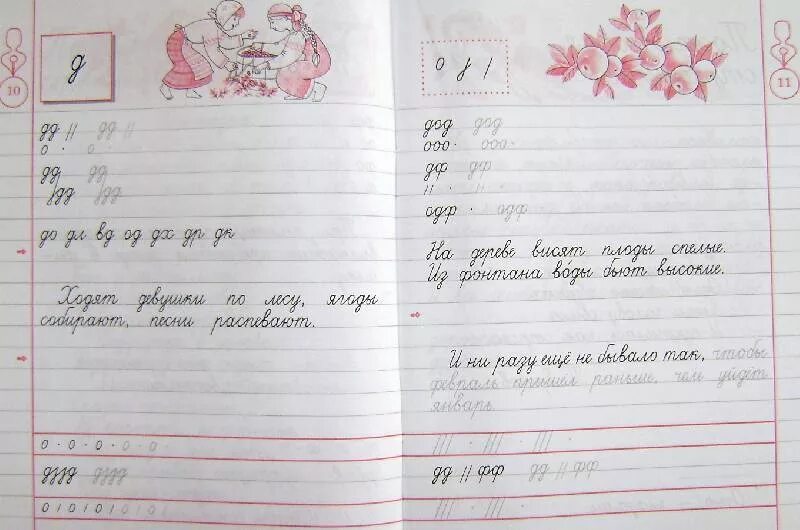 10
д
дд // дд //
о · о ·
ддј ддј
ддд ддд
до дл вд од дх др дк
Ходят девушки по лесу, ягоды
собирают, песни распевают.
о · о · о · о · о ·
дззд дззд
о ı о ı о ı о ı о ı
11
дод дод
ооо · ооо ·
дф дф
// · // ·
одф · одф
На дереве висят плоды спелые.
Из фонтана во́ды бьют высокие.
И ни разу ещё не бывало так, чтобы
февраль пришёл раньше, чем уйдёт
январь.
/// · /// · /// ·
дд // фф дд // фф
/// · /// · /// ·